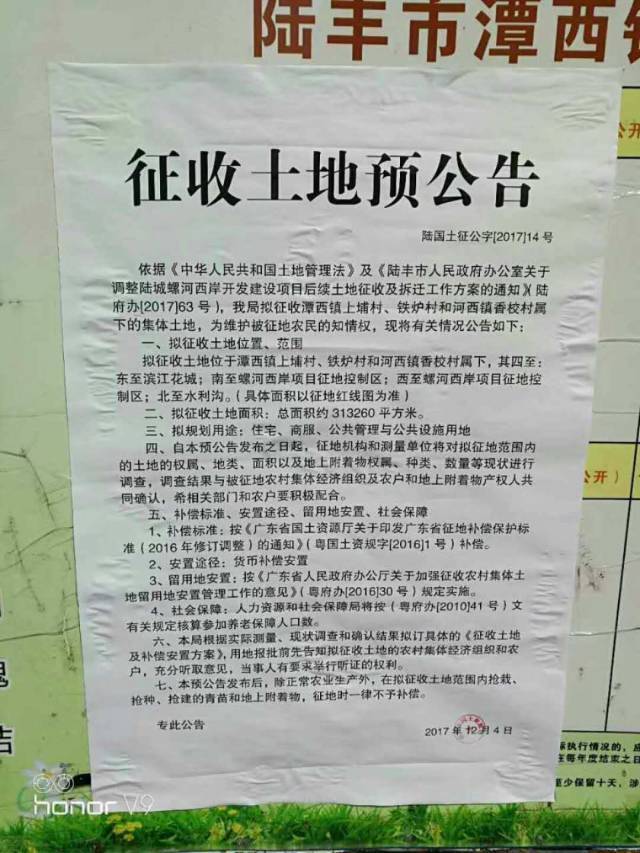 陆丰市潭西镇
征收土地预公告
陆国土征公字[2017]14 号
依据《中华人民共和国土地管理法》及《陆丰市人民政府办公室关于
调整陆城螺河西岸开发建设项目后续土地征收及拆迁工作方案的通知》(陆
府办[2017]63 号),我局拟征收潭西镇上埔村、铁炉村和河西镇香校村属
下的集体土地,为维护被征地农民的知情权,现将有关情况公告如下:
一、拟征收土地位置、范围
拟征收土地位于潭西镇上埔村、铁炉村和河西镇香校村属下,其四至:
东至滨江花城;南至螺河西岸项目征地控制区;西至螺河西岸项目征地控
制区;北至水利沟。(具体面积以征地红线图为准)
二、拟征收土地面积:总面积约 313260 平方米。
三、拟规划用途:住宅、商服、公共管理与公共设施用地
四、自本预公告发布之日起,征地机构和测量单位将对拟征地范围内
的土地的权属、地类、面积以及地上附着物权属、种类、数量等现状进行
调查,调查结果与被征地农村集体经济组织及农户和地上附着物产权人共
同确认,希相关部门和农户要积极配合。
五、补偿标准、安置途径、留用地安置、社会保障
1、补偿标准:按《广东省国土资源厅关于印发广东省征地补偿保护标
准(2016 年修订调整)的通知》(粤国土资规字[2016]1 号)补偿。
2、安置途径:货币补偿安置
3、留用地安置:按《广东省人民政府办公厅关于加强征收农村集体土
地留用地安置管理工作的意见》(粤府办[2016]30 号)规定实施。
4、社会保障:人力资源和社会保障局将按(粤府办[2010]41 号)文
有关规定核算参加养老保障人口数。
六、本局根据实际测量、现状调查和确认结果拟订具体的《征收土地
及补偿安置方案》,用地报批前先告知拟征收土地的农村集体经济组织和农
户,充分听取意见,当事人有要求举行听证的权利。
七、本预公告发布后,除正常农业生产外,在拟征收土地范围内抢栽、
抢种、抢建的青苗和地上附着物,征地时一律不予补偿。
专此公告
2017 年 12 月 4 日
公开
公开)
际执行情况的,应
在每年度结束之日
至少保留十天,涉
honor V9